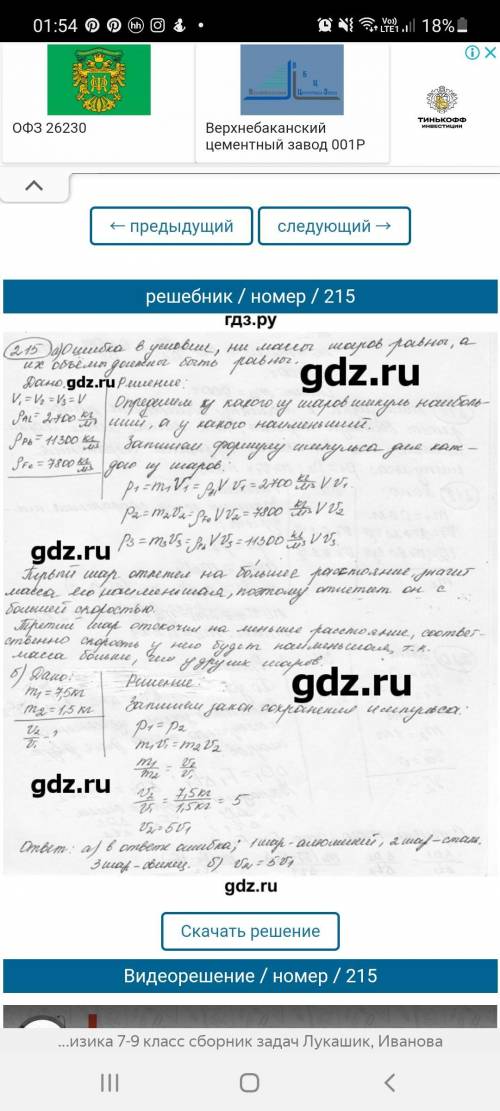 01:54
Vo))
LTE1
18%
ОФЗ 26230
Верхнебаканский
цементный завод 001Р
ТИНЬКОФФ
ИНВЕСТИЦИИ
← предыдущий
следующий →
решебник / номер / 215
гдз.ру
215 а) Ошибка в условие, ни массы шаров равны, а
их объемы должны быть равны.
Дано: Решение:
gdz.ru
V₁ = V₂ = V₃ = V
Определим у какого из шаров импульс наиболь-
ший, а у какого наименьший.
ρAl = 2700 кг/м³
ρPb = 11300 кг/м³
ρFe = 7800 кг/м³
Запишем формулу импульса для каж-
дого из шаров.
p₁ = m₁V₁ = ρAl V V₁ = 2700 кг/м³ V V₁
p₂ = m₂V₂ = ρFe V V₂ = 7800 кг/м³ V V₂
p₃ = m₃V₃ = ρPb V V₃ = 11300 кг/м³ V V₃
gdz.ru
Первый шар отлетел на большее расстояние, значит
масса его наименьшая, поэтому отлетает он с
большей скоростью.
Третий шар отскочил на меньшее расстояние, соответ-
ственно скорость у него будет наименьшая, т.к.
масса больше, чем у других шаров.
б) Дано: Решение:
gdz.ru
m₁ = 7,5 кг
m₂ = 1,5 кг
V₂/V₁ - ?
Запишем закон сохранения импульса:
p₁ = p₂
m₁V₁ = m₂V₂
m₁/m₂ = V₂/V₁
V₂/V₁ = 7,5 кг/1,5 кг = 5
V₂ = 5V₁
gdz.ru
Ответ: а) в ответе ошибка; 1 шар - алюминий, 2 шар - сталь,
3 шар - свинец. б) V₂ = 5V₁
gdz.ru
Скачать решение
Видеорешение / номер / 215
...изика 7-9 класс сборник задач Лукашик, Иванова